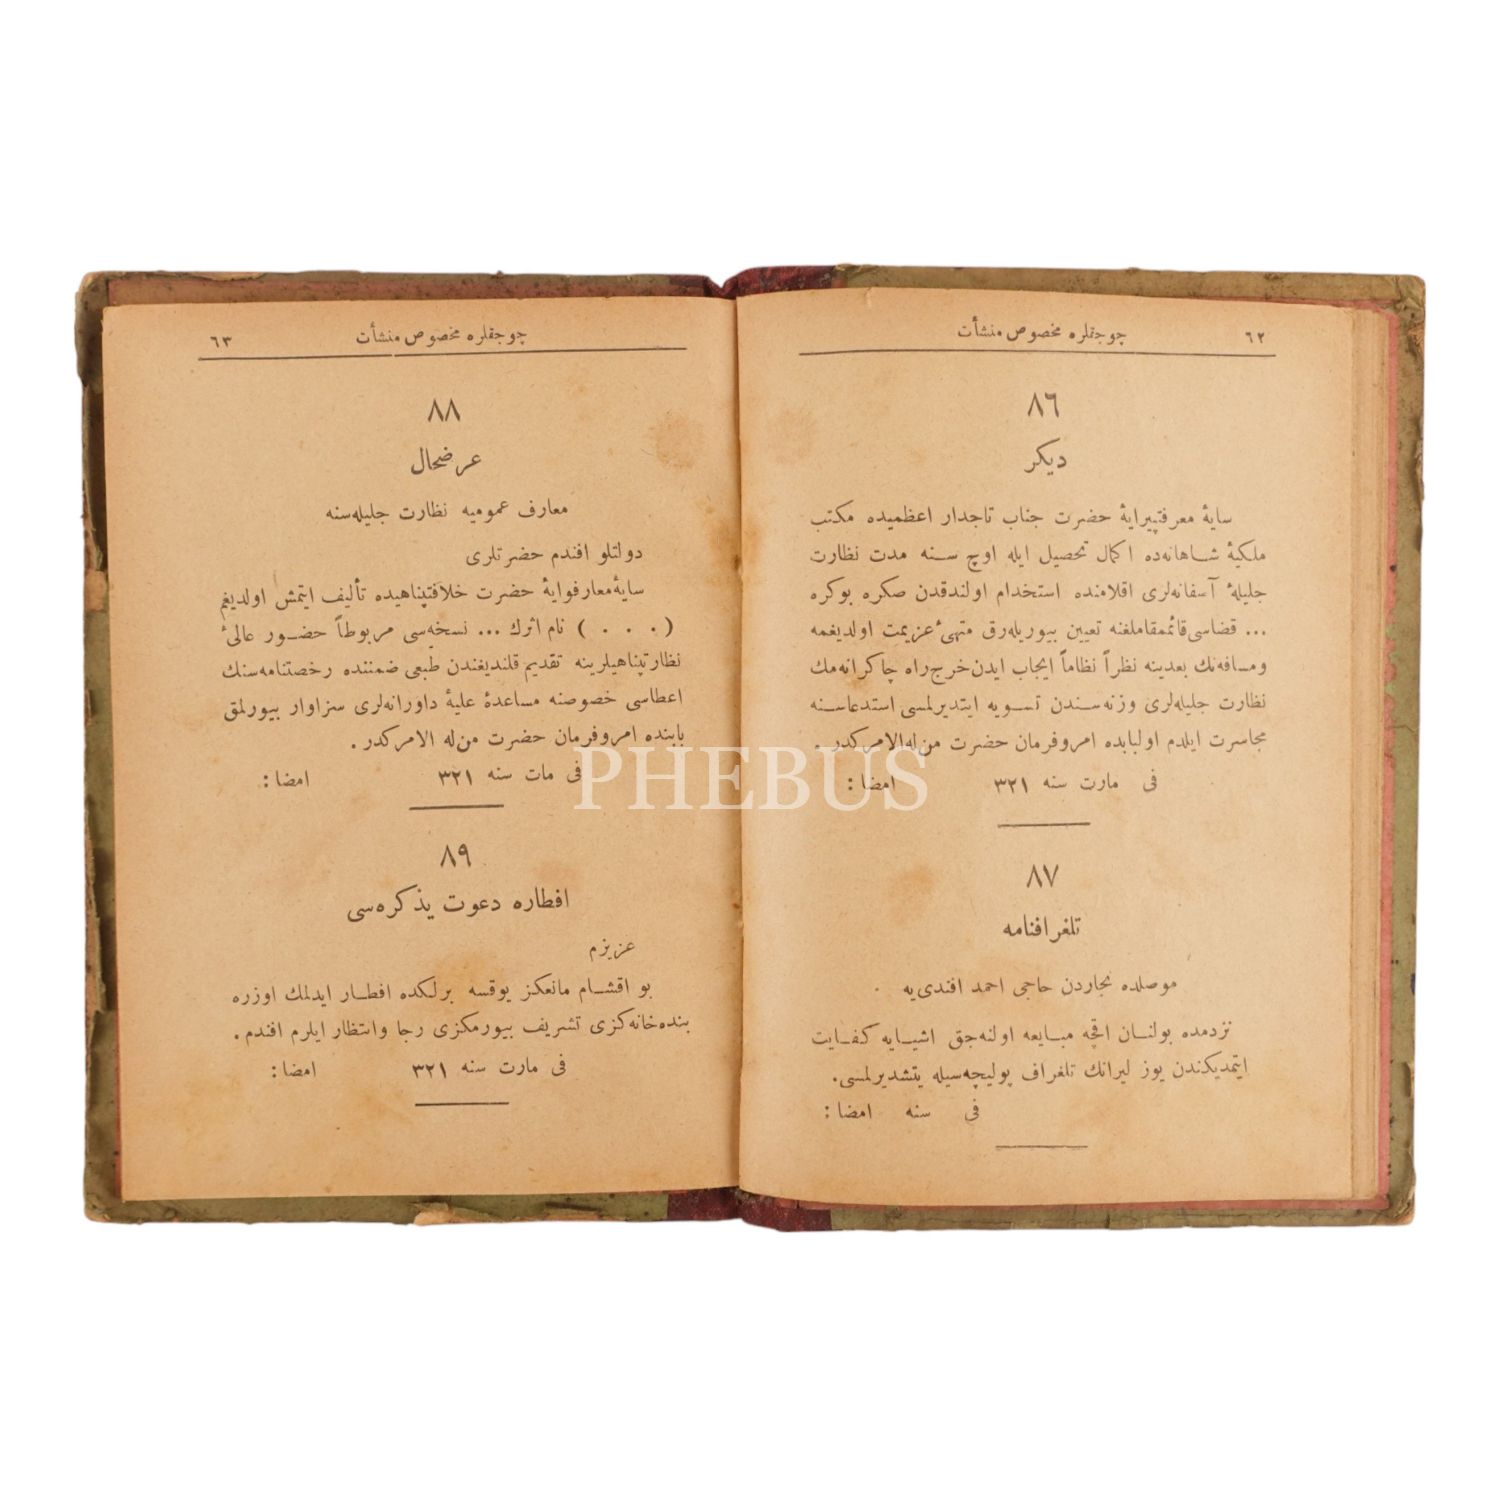 ٦٢ چوجقلره مخصوص منشأت
٨٦
دیكر
سایهٔ معرفتپیرایهٔ حضرت جناب تاجدار اعظمیده مكتب
ملكیهٔ شاهانه‌ده اكمال تحصیل ایله اوچ سنه مدت نظارت
جلیلهٔ آسفانه‌لری اقلامنده استخدام اولندقدن صكره بوكره
... قضاسی قائممقاملغنه تعیین بیوریله‌رق متهیٔ عزیمت اولدیغمه
ومسافه‌نك بعدینه نظراً نظاماً ایجاب ایدن خرج‌راه چاكرانه‌مك
نظارت جلیله‌لری وزنه‌سندن تسویه ایتدیرلمسی استدعاسنه
مجاسرت ایلدم اولبابده امروفرمان حضرت من‌له‌الامركدر.
فی مارت سنه ٣٢١ امضا:
٨٧
تلغرافنامه
موصلده تجاردن حاجی احمد افندی‌یه
نزدمده بولنان اقچه مبایعه اولنه‌جق اشیایه كفایت
ایتمدیكندن یوز لیرانك تلغراف پولیچه‌سیله یتشدیرلمسی.
فی سنه امضا:
چوجقلره مخصوص منشأت ٦٣
٨٨
عرضحال
معارف عمومیه نظارت جلیله‌سنه
دولتلو افندم حضرتلری
سایهٔ معارفوایهٔ حضرت خلافتپناهیده تألیف ایتمش اولدیغم
( . . . ) نام اثرك ... نسخه‌سی مربوطاً حضور عالیٔ
نظارتپناهیلرینه تقدیم قلندیغندن طبعی ضمننده رخصتنامه‌سنك
اعطاسی خصوصنه مساعدهٔ علیهٔ داورانه‌لری سزاوار بیورلمق
بابنده امروفرمان حضرت من‌له الامركدر.
فی مات سنه ٣٢١ امضا:
٨٩
افطاره دعوت یذكره‌سی
عزیزم
بو اقشام مانعكز یوقسه برلكده افطار ایدلمك اوزره
بنده‌خانه‌كزی تشریف بیورمكزی رجا وانتظار ایلرم افندم.
فی مارت سنه ٣٢١ امضا:
PHEBUS